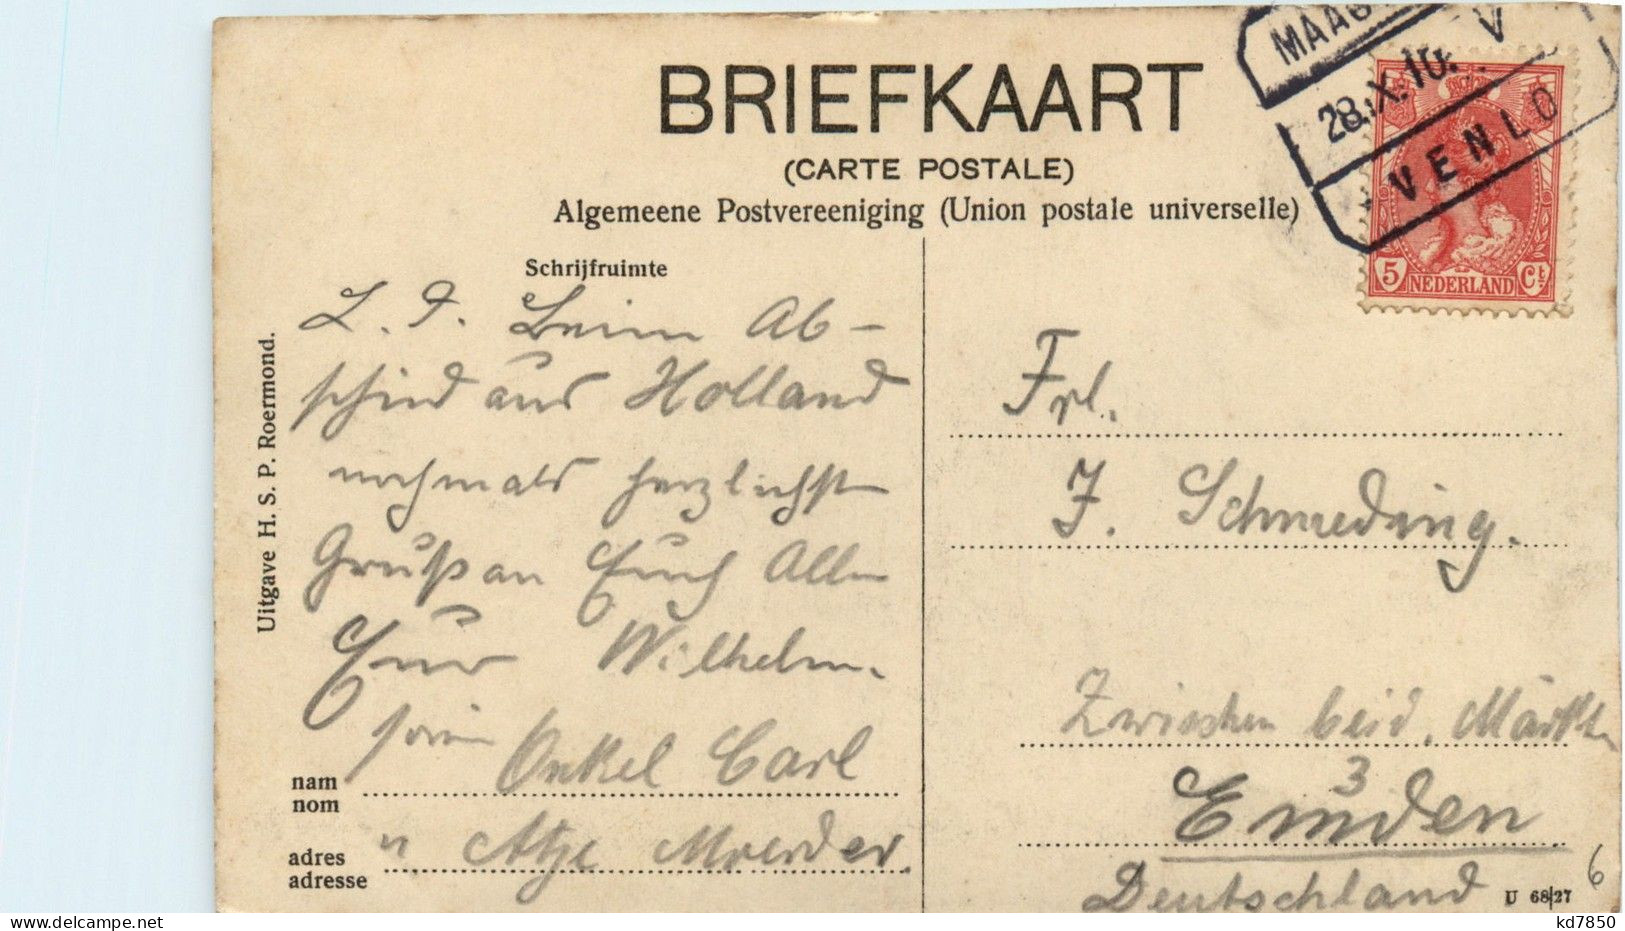 BRIEFKAART
(CARTE POSTALE)
Algemeene Postvereeniging (Union postale universelle)
MAAS
V
28.X.10.
VENLO
5 NEDERLAND Ct
Schrijfruimte
L. F. Beim Ab-
schied aus Holland
nochmals herzlichste
Gruß an Euch Allen
Euer Wilhelm.
Onkel Carl
u Atje
Frl.
J. Schmeding.
Zwischen beid. Märkten
3
Emden
Deutschland
nam
nom
adres
adresse
Uitgave H. S. P. Roermond.
U 68/27
6
www.delcampe.net
kd7850